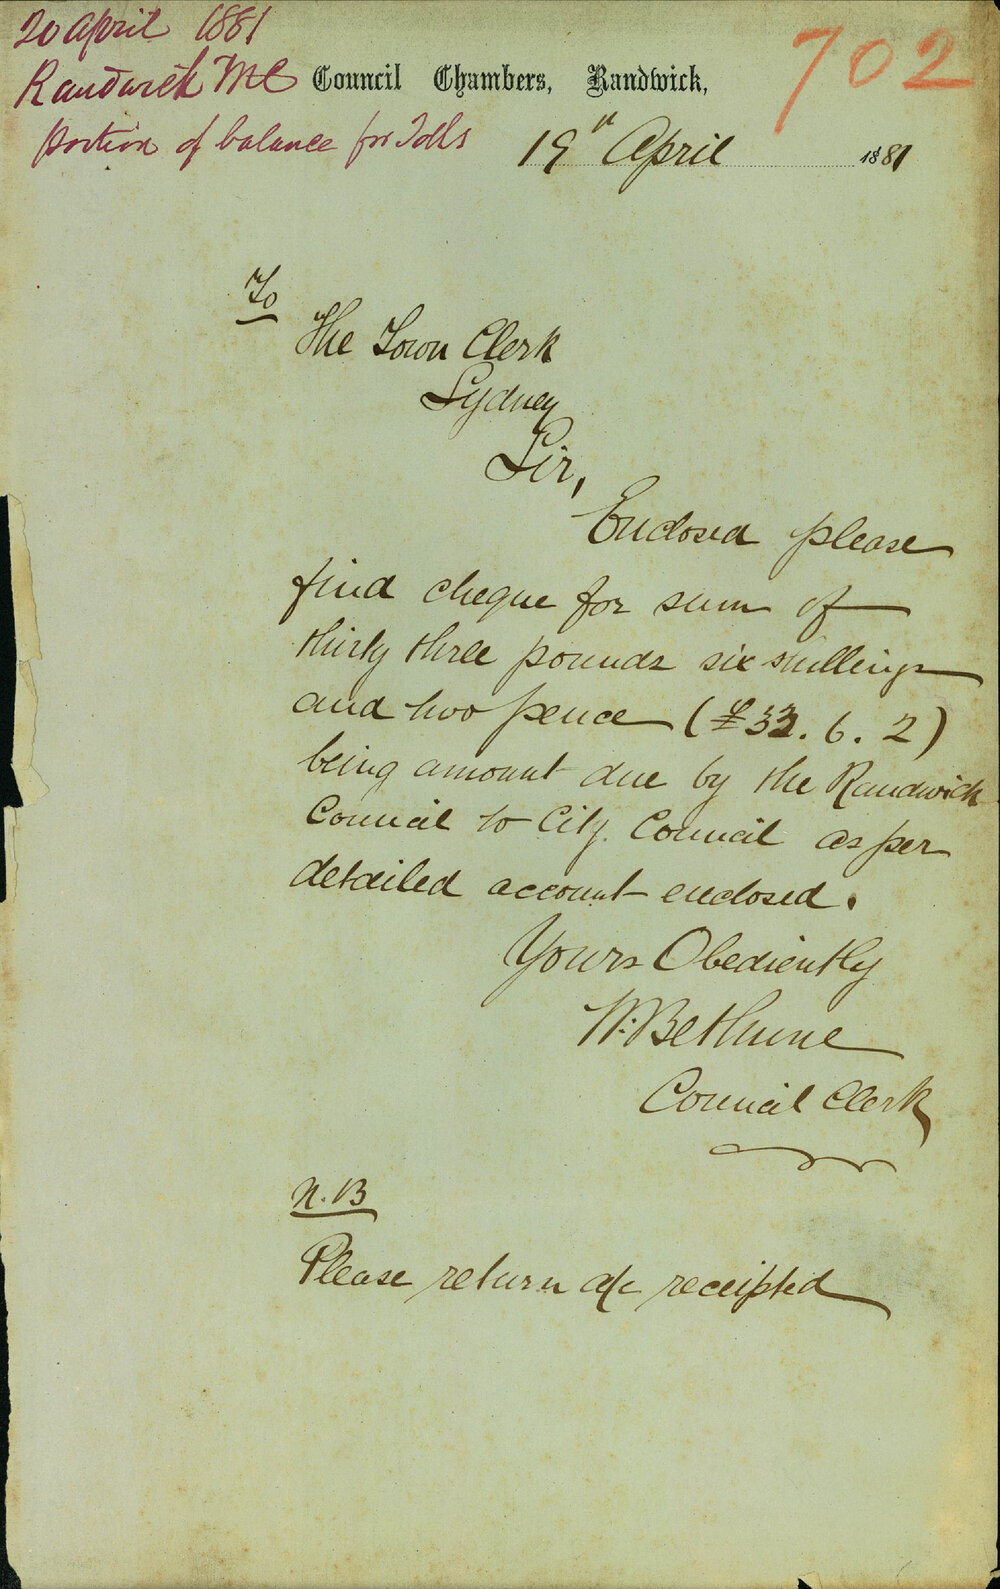 20 April 1881
Randwick MC
portion of balance for Tolls
702
Council Chambers, Randwick,
19th April 1881
To
The Town Clerk
Sydney
Sir,
Enclosed please
find cheque for sum of
thirty three pounds six shillings
and two pence (£33. 6. 2)
being amount due by the Randwick
Council to City. Council as per
detailed account enclosed.
Yours Obediently
W. Bethune
Council Clerk
N.B
Please return a/c receipted